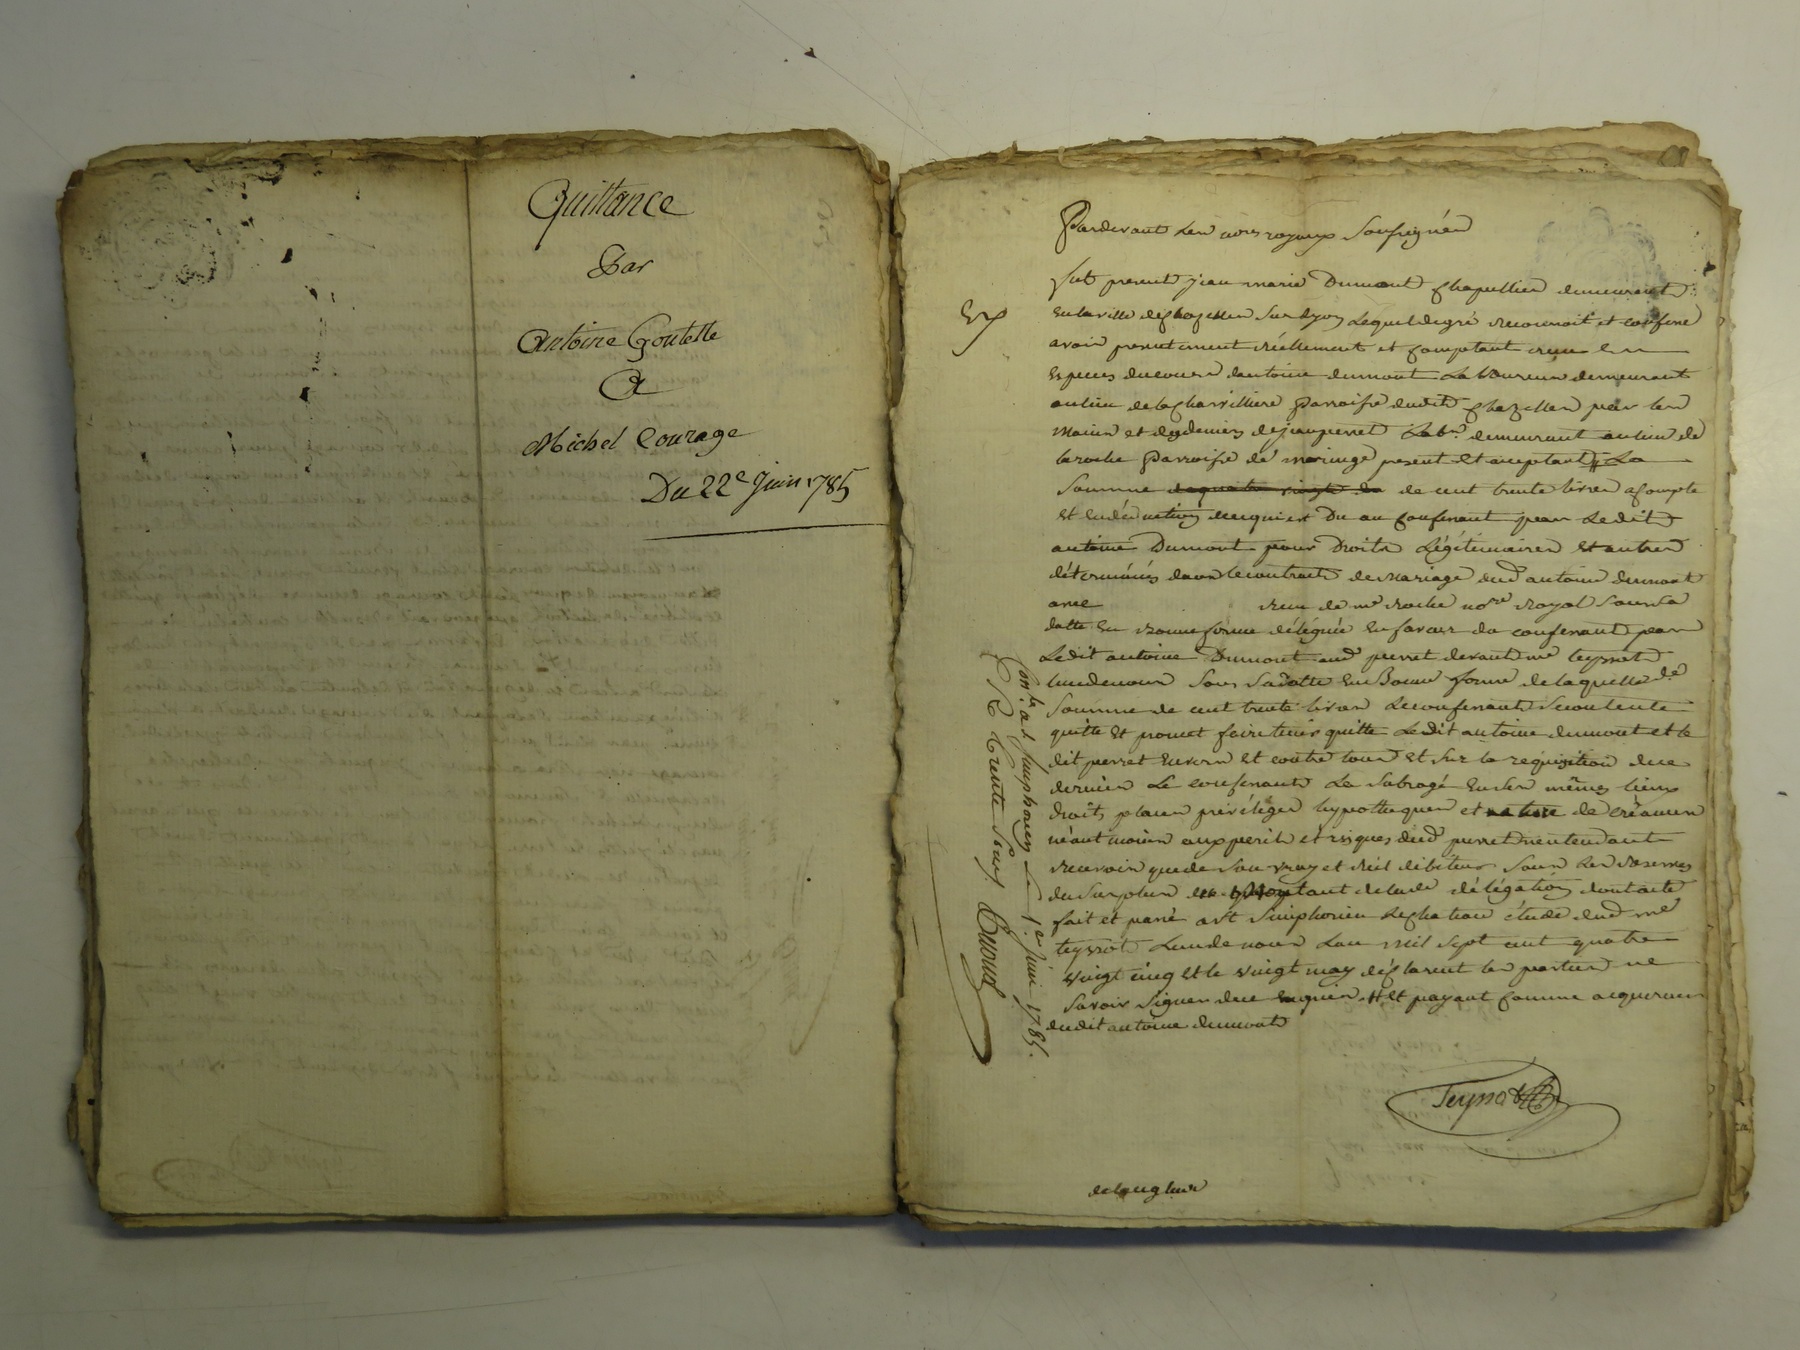 Quittance
Par
Antoine Goutelle
A
Michel Courage
Du 22e Juin 1785
Pardevant Les nores royaux Soussignés
Fut present jean marie Dumont Chapellier demeurant
En la ville de Chazelles Sur Lyon Lequel de gré reconnoit et confesse
avoir presentement réellement et comptant reçu En
Especes du cours d'antoine dumont Laboureur demeurant
au lieu de la Parroisse dudit Chazelles par les
Mains et des deniers de jean perret Labr. demeurant au lieu de
la roche Parroisse de maringe present Et acceptant # La
Somme de cent trente livres a Compte
Et En déduction de ce qui est Du au Confessant par Ledit
antoine Dumont pour Droits Légitimaires Et autres
déterminés dans le contract de Mariage dud antoine dumont
avec reçu de me roche nore Royal Sous Sa
datte En Bonne forme déléguée En faveur du confessant par
Ledit antoine Dumont aud perret devant me teyssot
L'un de nous Sous Sa datte En Bonne forme de laquelle de
Somme de cent trente livres Le confessant Se contente
quitte Et promet faire tenir quitte Ledit antoine dumont et le
dit perret Envers Et contre tous Et Sur la réquisition de ce
dernier Le confessant La Subrogé En Ses mêmes lieux
Droits places privilèges hypotheques et de créances
néantmoins aux perils et risques dud perret n'entendant
recevoir que de Son vray et réel débiteur Sous Les reserves
du Surplus du montant de lad délégation dont acte
fait et passé a St Simphorien Le Chateau étude dud me
teyssot L'un de nous L'an Mil Sept cent quatre
vingt cinq Et le vingt may déclarent les parties ne
Savoir Signer de ce Enquis # Et payant Comme acquereur
dudit antoine dumont
Teyssot
Contlé a St Simphorien Le 1er Juin 1785.
R Trente Sous